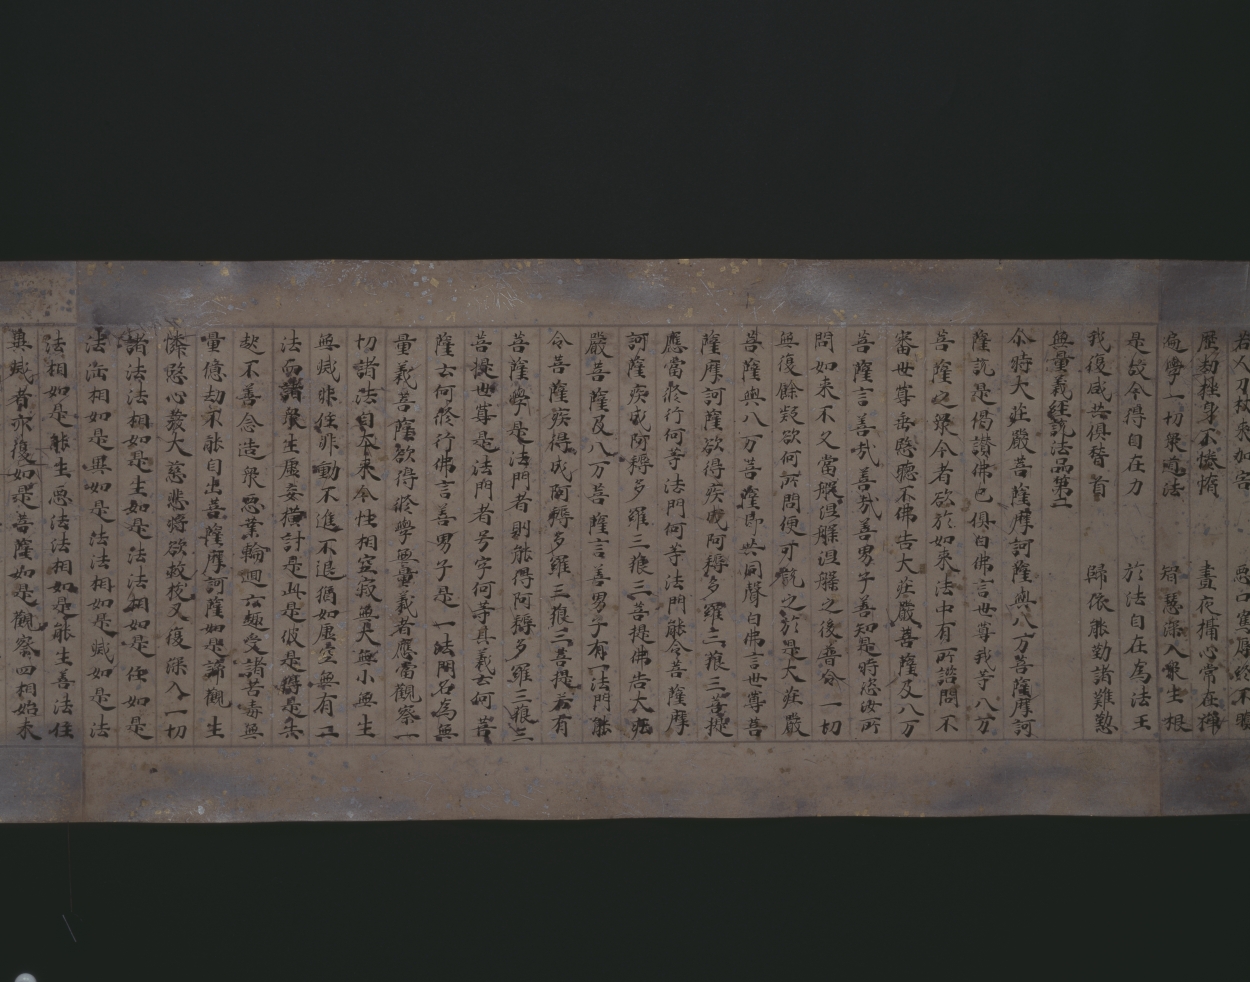 若人刀杖來加害　惡口罵辱終不瞋
歷劫挫身不惓惰　晝夜攝心常在禪
遍學一切衆道法　智慧深入衆生根
是故今得自在力　於法自在爲法王
我復咸共俱稽首　歸依能勤諸難懃
無量義經說法品第二
尒時大莊嚴菩薩摩訶薩與八万菩薩摩訶
薩說是偈讚佛已俱白佛言世尊我等八万
菩薩之衆今者欲於如來法中有所諮問不
審世尊垂愍聽不佛告大莊嚴菩薩及八万
菩薩言善哉善哉善男子善知是時恣汝所
問如來不久當般涅槃涅槃之後普令一切
無復餘疑欲何所問便可說之於是大莊嚴
菩薩與八万菩薩即共同聲白佛言世尊菩
薩摩訶薩欲得疾成阿耨多羅三藐三菩提
應當脩行何等法門何等法門能令菩薩摩
訶薩疾成阿耨多羅三藐三菩提佛告大莊
嚴菩薩及八万菩薩言善男子有一法門能
令菩薩疾得成阿耨多羅三藐三菩提若有
菩薩學是法門者則能得阿耨多羅三藐三
菩提世尊是法門者号字何等其義云何菩
薩云何脩行佛言善男子是一法門名爲無
量義菩薩欲得脩學無量義者應當觀察一
切諸法自本來今性相空寂無大無小無生
無滅非住非動不進不退猶如虛空無有二
法而諸衆生虛妄橫計是此是彼是得是失
起不善念造衆惡業輪迴六趣受諸苦毒無
量億劫不能自出菩薩摩訶薩如是諦觀生
憐愍心發大慈悲將欲救拔又復深入一切
諸法法相如是生如是法法相如是住如是
法法相如是異如是法法相如是滅如是法
法相如是能生惡法法相如是能生善法住
異滅者亦復如是菩薩如是觀察四相始末